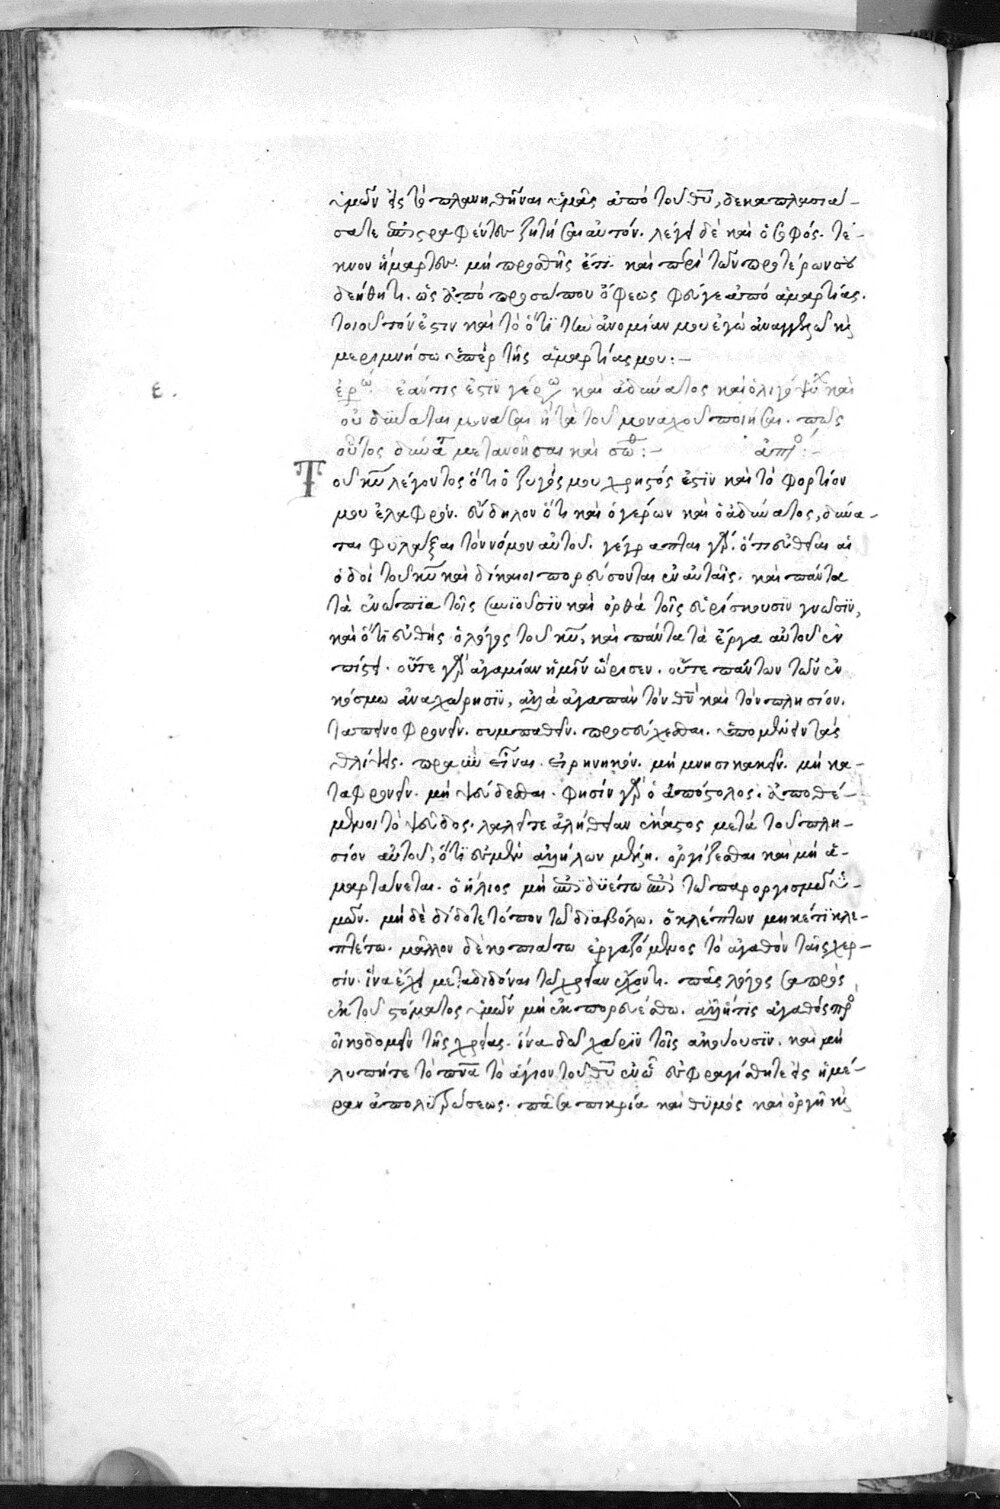 ὑμῶν εἰς τὸ πλανηθῆναι ὑμᾶς ἀπὸ τοῦ θῦ, δεκαπλασιά-
σατε ἐπιστραφέντες ζητῆσαι αὐτόν. λέγει δὲ καὶ ὁ σοφός. τέ-
κνον ἥμαρτες. μὴ προσθῇς ἔτι. καὶ περὶ τῶν προτέρων σου
δεήθητι. ὡς ἀπὸ προσώπου ὄφεως φεῦγε ἀπὸ ἁμαρτίας.
τοιοῦτόν ἐστιν καὶ τὸ ὅτι τὴν ἀνομίαν μου ἐγὼ ἀναγγελῶ καὶ
μεριμνήσω ὑπὲρ τῆς ἁμαρτίας μου:-
ε. ἐρω ἐάν τις ἐστὶν γέρων καὶ ἀδύνατος καὶ ὀλιγόψυχος καὶ
οὐ δύναται μονάσαι ἢ τὰ τοῦ μοναχοῦ ποιῆσαι. πῶς
οὗτος δύναται μετανοῆσαι καὶ σωθ:- ἀπο:-
Τοῦ κυ λέγοντος ὅτι ὁ ζυγός μου χρηστός ἐστιν καὶ τὸ φορτίον
μου ἐλαφρόν. εὔδηλον ὅτι καὶ ὁ γέρων καὶ ὁ ἀδύνατος, δύνα-
ται φυλάξαι τὸν νόμον αὐτοῦ. γέγραπται γὰρ. ὅτι εὐθεῖαι αἱ
ὁδοὶ τοῦ κυ καὶ δίκαιοι πορεύσονται ἐν αὐταῖς. καὶ πάντα
τὰ ἐνώπια τοῖς συνιοῦσιν καὶ ὀρθὰ τοῖς εὑρίσκουσιν γνῶσιν,
καὶ ὅτι εὐθὴς ὁ λόγος τοῦ κυ, καὶ πάντα τὰ ἔργα αὐτοῦ ἐν
πίστει. οὔτε γὰρ ἀγαμίαν ἡμῖν ὥρισεν. οὔτε πάντων τῶν ἐν
κόσμω ἀναχώρησιν, ἀλλὰ ἀγαπᾶν τὸν θν καὶ τὸν πλησίον.
ταπεινοφρονεῖν. συμπαθεῖν. προσεύχεσθαι. ὑπομένειν τὰς
θλίψεις. πραῢν εἶναι. εἰρηνικόν. μὴ μνησικακεῖν. μὴ κα-
ταφρονεῖν. μὴ ψεύδεσθαι. φησὶν γὰρ ὁ ἀπόστολος. ἀποθέ-
μενοι τὸ ψεῦδος. λαλεῖτε ἀλήθειαν ἕκαστος μετὰ τοῦ πλη-
σίον αὐτοῦ, ὅτι ἐσμὲν ἀλλήλων μέλη. ὀργίζεσθαι καὶ μὴ ἁ-
μαρτάνεται. ὁ ἥλιος μὴ ἐπιδυέτω ἐπὶ τῶ παροργισμῶ ὑ-
μῶν. μὴ δὲ δίδοτε τόπον τῶ διαβόλω. ὁ κλέπτων μηκέτι κλε-
πτέτω. μᾶλλον δὲ κοπιάτω ἐργαζόμενος τὸ ἀγαθὸν ταῖς χερ-
σίν. ἵνα ἔχει μεταδιδόναι τῶ χρείαν ἔχοντι. πᾶς λόγος σαπρὸς
ἐκ τοῦ στόματος ὑμῶν μὴ ἐκπορευέσθω. ἀλλ' εἴ τις ἀγαθὸς πρὸ
οἰκοδομεῖν τῆς χρείας. ἵνα δῶ χάριν τοῖς ἀκούουσιν. καὶ μὴ
λυπῆτε τὸ πνα τὸ ἅγιον τοῦ θυ ἐν ὧ ἐσφραγίσθητε εἰς ἡμέ-
ραν ἀπολυτρώσεως. πᾶσα πικρία καὶ θυμὸς καὶ ὀργὴ καὶ